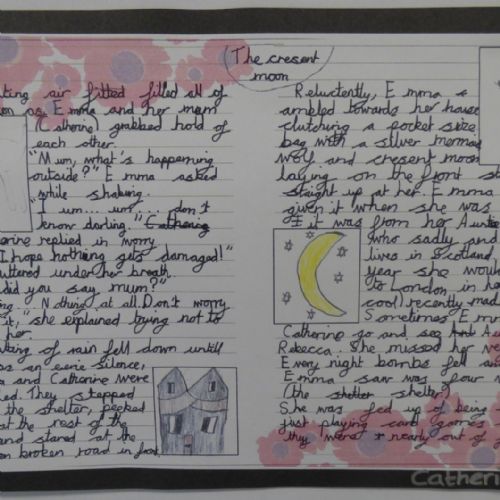 The cresent
moon
ting air fitted filled all of
on as Emma and her mum
(Catherine) grabbed hold of
each other.
"Mum, what's happening
outside?" Emma asked
while shaking.
"I um... um... don't
know darling." Catherine
erine replied in worry
I hope nothing gets damaged!"
uttered under her breath.
did you say mum?"
ng. Nothing at all. Don't worry
it," she explained trying not to
her.
king of rain fell down until
as an eerie silence,
a and Catherine were
ed. They stepped
the shelter, peeked
at the rest of the
and stared at the
en broken road in front.
Reluctantly, Emma s
ambled towards her house
clutching a pocket size
bag with a silver mermaid
wolf and cresent moon
laying on the front st
straight up at her. Emma
given it when she was
It was from her Aunt
who sadly
lives in Scotland
year she would
to London in he
cool recently mad
Sometimes Emm
Catherine go and see her Aun
Rebecca. She missed her ve
Every night bombs fell an
Emma saw was four
(the shelter shelter)
She was fed up of being
just playing card games
they were nearly out of
Catheri